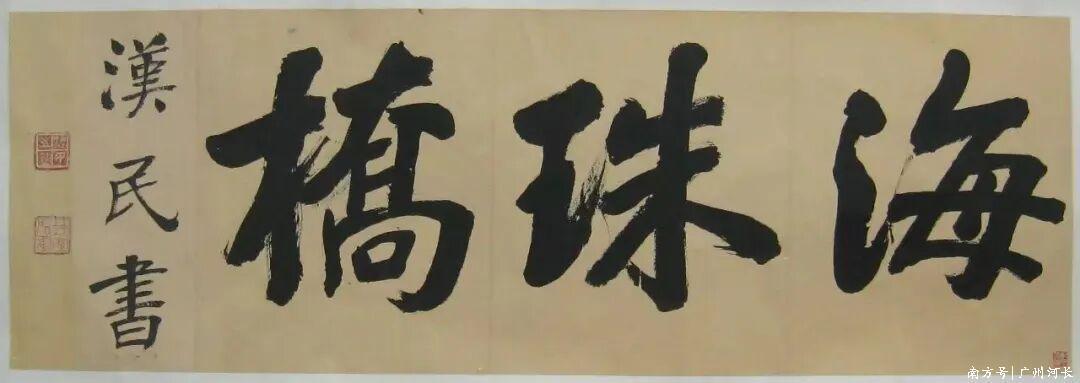 海珠橋
漢民書
南方号|广州河长